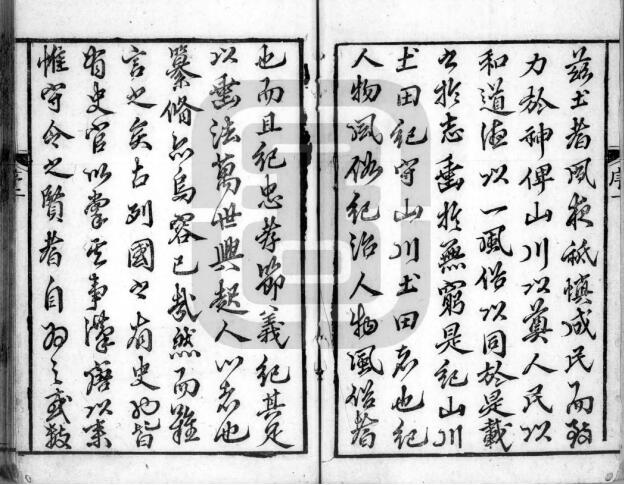 序一
茲土者夙夜祗慎成民而致
力於神俾山川以奠人民以
和道德以一風俗以同於是載
之於志垂於無窮是紀山川
土田紀守山川土田者也紀
人物風俗紀治人物風俗者
也而且紀忠孝節義紀其足
以垂法萬世興起人心者也
纂脩亦烏容已哉然而難
言之矣古列國之有史皆
有史官以掌其事漢唐以來
惟守令之賢者自為之或數
序二